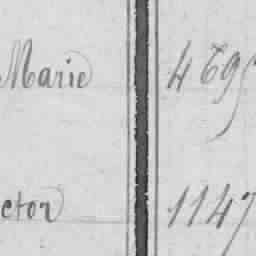 Marie 469
ctor 1147